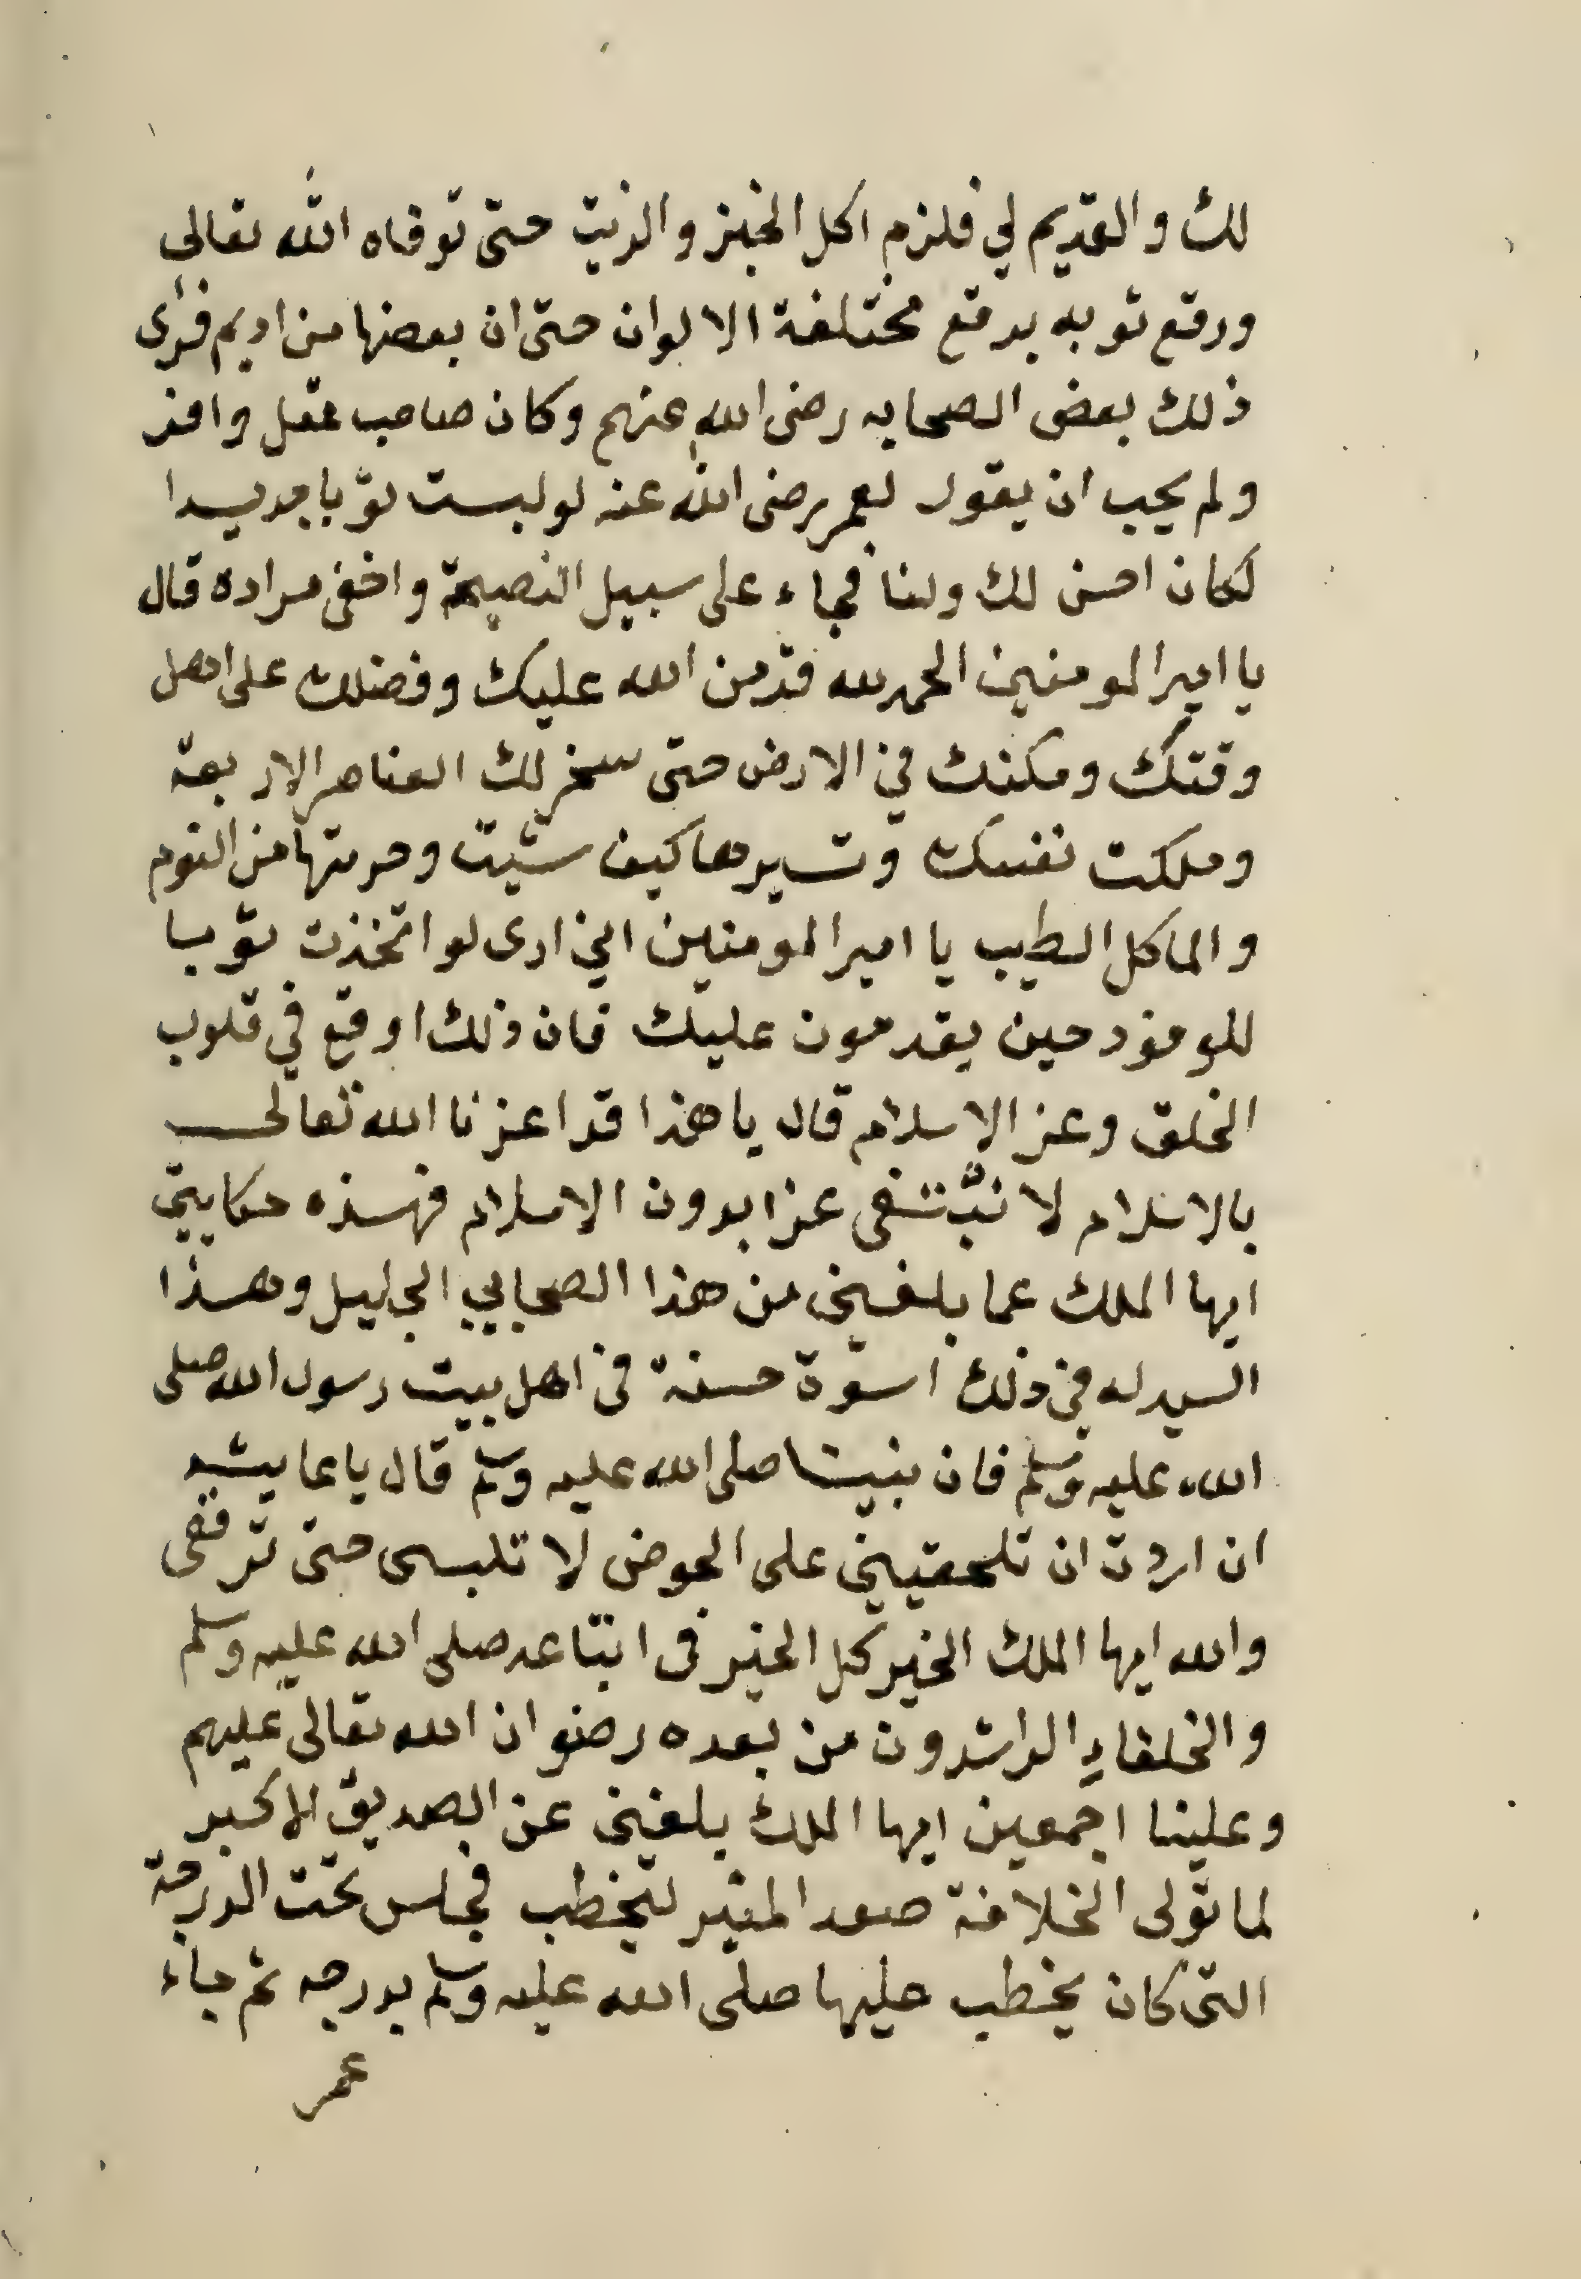 لك والقديم لي فلزم اكل الخبز والزيت حتى توفاه الله تعالى
ورقع ثوبه برقع مختلفة الالوان حتى ان بعضها من اديم فرأى
ذلك بعض الصحابه رضى الله عنهم وكان صاحب عقل وافر
ولم يحب ان يقول لعمر رضى الله عنه لو لبست ثوبا جديدا
لكان احسن لك ولنا فجاء على سبيل النصيحة واخفى مراده قال
يا امير المومنين الحمد لله قد من الله عليك وفضلك على اهل
وقتك ومكنك في الارض حتى سخر لك العناصر الاربعة
وملكت نفسك وتسيرها كيف شيت وحرمتها من النوم
والماكل الطيب يا امير المومنين اني ارى لو اتخذت ثوبا
للوفود حين يقدمون عليك فان ذلك اوقع في قلوب
الخلق وعز الاسلام قال يا هذا قد اعزنا الله تعالى
بالاسلام لا نبتغى عزا بدون الاسلام فهذه حكايتي
ايها الملك عما بلغني من هذا الصحابي الجليل وهذا
السيد له في ذلك اسوة حسنة في اهل بيت رسول الله صلى
الله عليه وسلم فان نبينا صلى الله عليه وسلم قال يا عايشه
ان اردت ان تلحقيني على الحوض لا تلبسى حتى ترقعى
والله ايها الملك الخير كل الخير في اتباعه صلى الله عليه وسلم
والخلفاء الراشدون من بعده رضوان الله تعالى عليهم
وعلينا اجمعين ايها الملك بلغني عن الصديق الاكبر
لما تولى الخلافة صعد المنبر ليخطب فجلس تحت الدرجة
التى كان يخطب عليها صلى الله عليه وسلم بدرجه ثم جاء
عمر